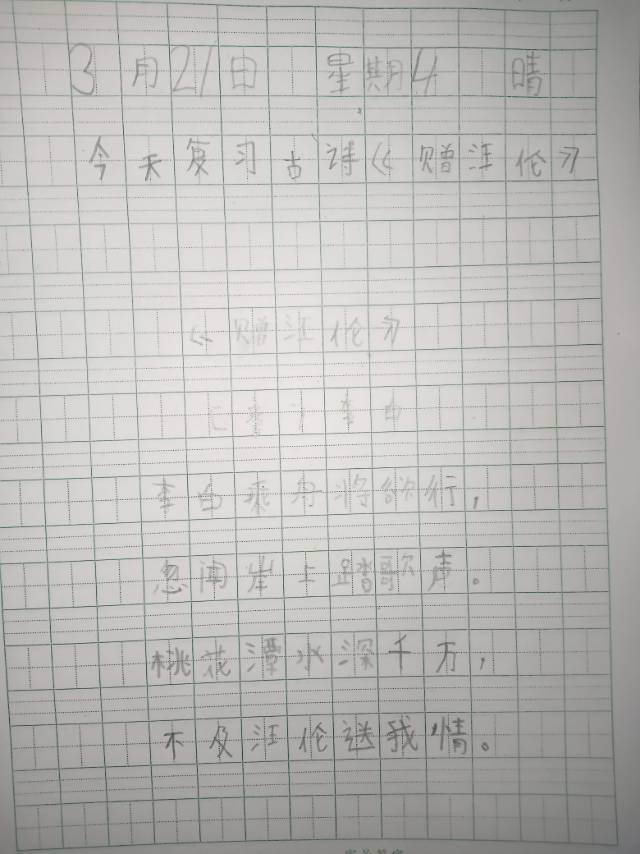 3月21日 星期4 晴
今天复习古诗《赠汪伦》
《赠汪伦》
李白
李白乘舟将欲行，
忽闻岸上踏歌声。
桃花潭水深千万，
不及汪伦送我情。